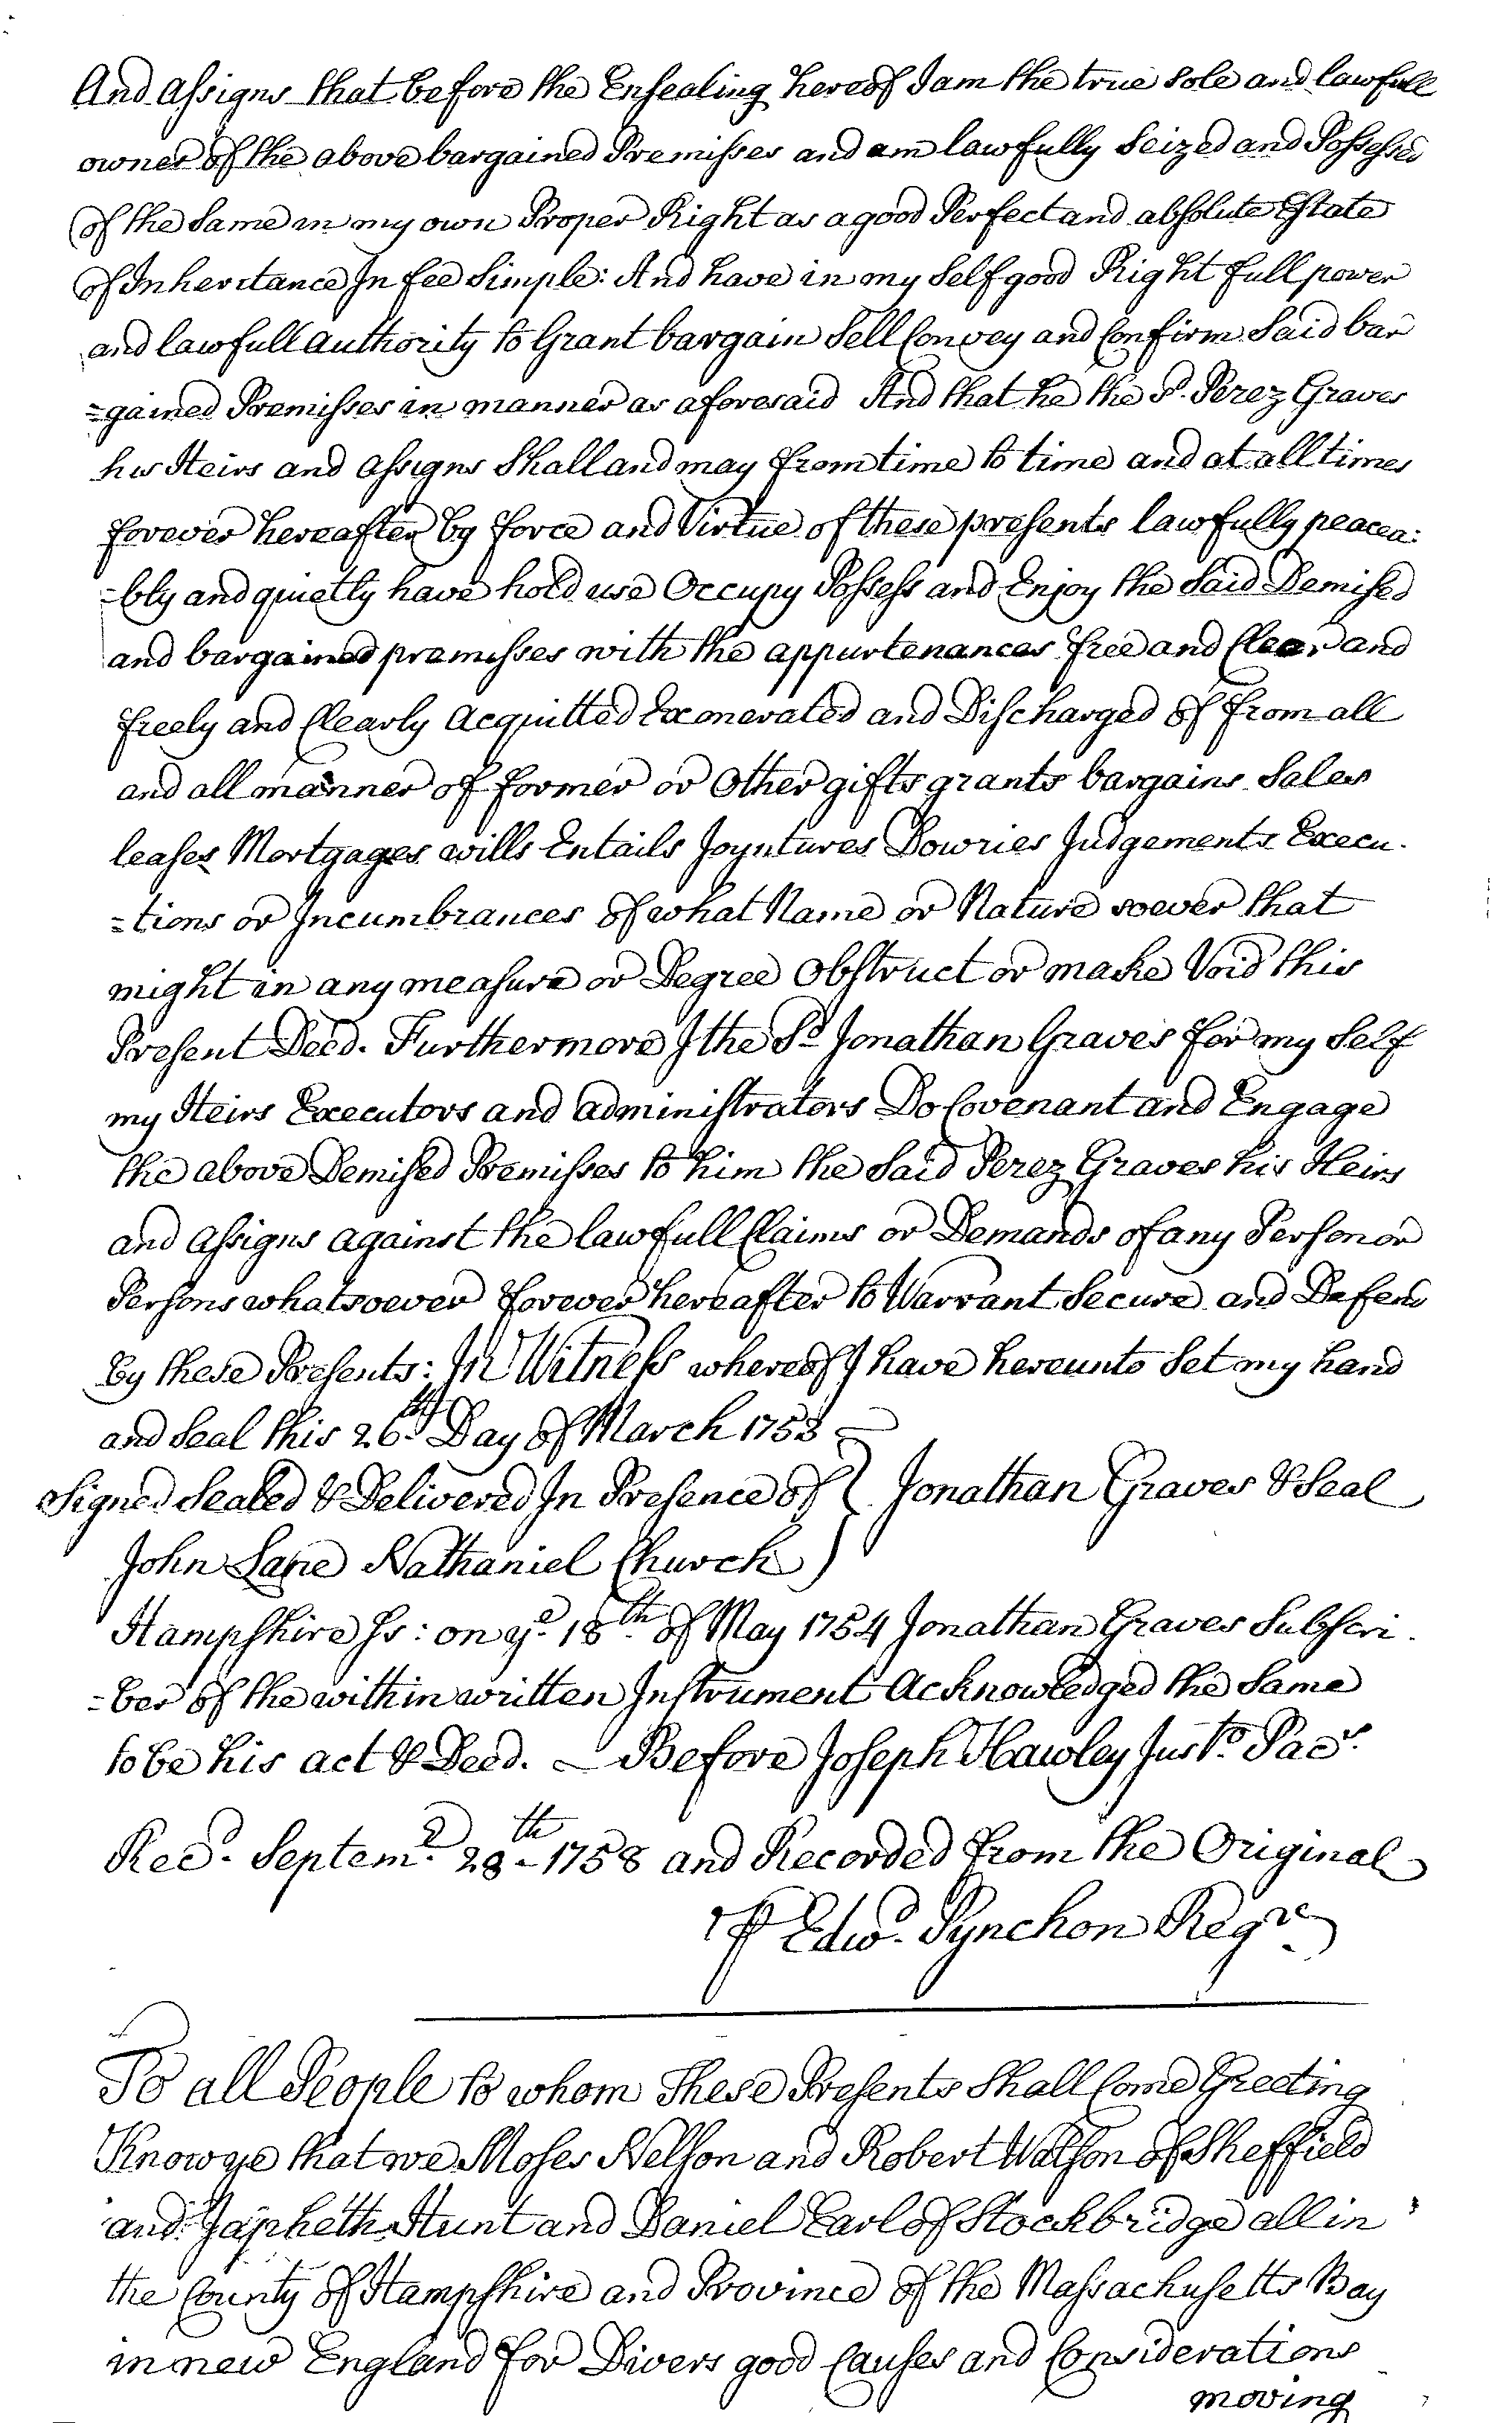 And Assigns that before the Ensealing hereof I am the true Sole and lawfull
owner of the above bargained Premisses and am lawfully Seized and Possessed
of the Same in my own Proper Right as a good Perfect and absolute Estate
of Inheritance In fee Simple: And have in my Self good Right full power
and lawfull Authority to Grant bargain Sell Convey and Confirm Said bar
=gained Premisses in manner as aforesaid And that he the Sd. Perez Graves
his Heirs and Assigns Shall and may from time to time and at all times
forever hereafter by force and Virtue of these presents lawfully peacea:
=bly and quietly have hold use Occupy Possess and Enjoy the Said Demised
and bargained premisses with the appurtenances free and Clear and
freely and Clearly Acquitted Exonerated and Discharged of from all
and all manner of former or Other gifts grants bargains Sales
leases Mortgages wills Entails Joyntures Dowries Judgements Execu.
=tions or Incumbrances of what Name or Nature soever that
might in any measure or Degree Obstruct or make Void this
Present Deed. Furthermore I the Sd Jonathan Graves for my Self
my Heirs Executors and Administrators Do Covenant and Engage
the above Demised Premisses to him the Said Perez Graves his Heirs
and Assigns against the lawfull Claims or Demands of any Person or
Persons whatsoever forever hereafter to Warrant Secure and Defend
by these Presents: In Witness whereof I have hereunto Set my hand
and Seal this 26th. Day of March 1753
Signed Sealed & Delivered In Presence of } Jonathan Graves & Seal
John Lane Nathaniel Church }
Hampshire Ss: on ye. 18th. of May 1754 Jonathan Graves Subscri.
=ber of the within written Instrument Acknowledged the Same
to be his act & Deed. — Before Joseph Hawley Justo Pacs.
Recd. Septemr. 28th - 1758 and Recorded from the Original
⅌ Edwd. Pynchon Regr.
To all People to whom These Presents Shall Come Greeting
Know ye that we Moses Nelson and Robert Watson of Sheffield
and Japheth Hunt and Daniel Earl of Stockbridge all in
the County of Hampshire and Province of the Massachusetts Bay
in new England for Divers good Causes and Considerations
moving